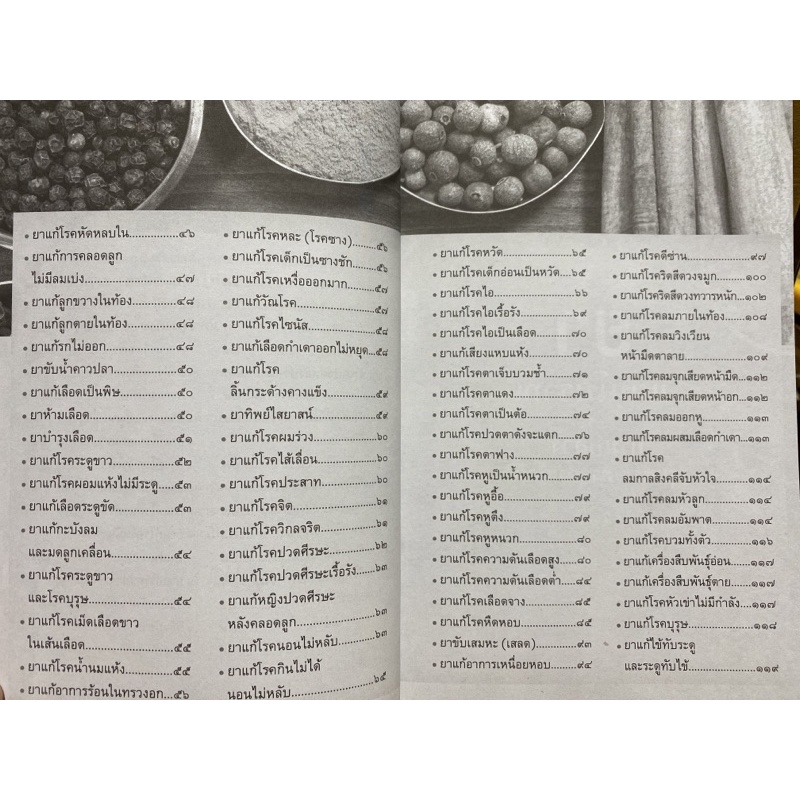 • ยาแก้โรคหัดหลบใน................๔๖
• ยาแก้การคลอดลูก
ไม่มีลมเบ่ง....................๔๗
• ยาแก้ลูกขวางในท้อง...........๔๘
• ยาแก้ลูกตายในท้อง............๔๘
• ยาแก้รกไม่ออก.................๔๘
• ยาขับน้ำคาวปลา................๕๐
• ยาแก้เลือดเป็นพิษ..............๕๐
• ยาห้ามเลือด....................๕๐
• ยาบำรุงเลือด...................๕๑
• ยาแก้โรคระดูขาว...............๕๒
• ยาแก้โรคผอมแห้งไม่มีระดู.....๕๓
• ยาแก้เลือดระดูขัด..............๕๓
• ยาแก้กะบังลม
และมดลูกเคลื่อน...............๕๔
• ยาแก้โรคระดูขาว
และโรคบุรุษ....................๕๔
• ยาแก้โรคเม็ดเลือดขาว
ในเส้นเลือด.....................๕๕
• ยาแก้โรคน้ำนมแห้ง............๕๕
• ยาแก้อาการร้อนในทรวงอก...๕๖
• ยาแก้โรคหละ (โรคซาง)........๕๖
• ยาแก้โรคเด็กเป็นซางชัก........๕๖
• ยาแก้โรคเหงื่อออกมาก........๕๗
• ยาแก้วัณโรค....................๕๗
• ยาแก้โรคไซนัส.................๕๘
• ยาแก้เลือดกำเดาออกไม่หยุด...๕๘
• ยาแก้โรค
ลิ้นกระด้างคางแข็ง............๕๙
• ยาทิพย์ไสยาสน์................๕๙
• ยาแก้โรคผมร่วง................๖๐
• ยาแก้โรคไส้เลื่อน..............๖๐
• ยาแก้โรคประสาท..............๖๐
• ยาแก้โรคจิต....................๖๑
• ยาแก้โรควิกลจริต..............๖๑
• ยาแก้โรคปวดศีรษะ............๖๒
• ยาแก้โรคปวดศีรษะเรื้อรัง.....๖๓
• ยาแก้หญิงปวดศีรษะ
หลังคลอดลูก...................๖๓
• ยาแก้โรคนอนไม่หลับ..........๖๓
• ยาแก้โรคกินไม่ได้
นอนไม่หลับ....................๖๔
• ยาแก้โรคหวัด..................๖๕
• ยาแก้โรคเด็กอ่อนเป็นหวัด.....๖๕
• ยาแก้โรคไอ....................๖๖
• ยาแก้โรคไอเรื้อรัง..............๖๙
• ยาแก้โรคไอเป็นเลือด..........๗๐
• ยาแก้เสียงแหบแห้ง............๗๐
• ยาแก้โรคตาเจ็บบวมช้ำ........๗๑
• ยาแก้โรคตาแดง................๗๒
• ยาแก้โรคตาเป็นต้อ.............๗๔
• ยาแก้โรคปวดตาดังจะแตก.....๗๖
• ยาแก้โรคตาฟาง................๗๗
• ยาแก้โรคหูเป็นน้ำหนวก.......๗๗
• ยาแก้โรคหูอื้อ..................๗๙
• ยาแก้โรคหูตึง..................๗๙
• ยาแก้โรคหูหนวก...............๘๐
• ยาแก้โรคความดันเลือดสูง.....๘๐
• ยาแก้โรคความดันเลือดต่ำ....๘๔
• ยาแก้โรคเลือดจาง.............๘๕
• ยาแก้โรคหืดหอบ...............๘๕
• ยาขับเสมหะ (เสลด)...........๙๓
• ยาแก้อาการเหนื่อยหอบ.......๙๔
• ยาแก้โรคดีซ่าน.................๙๗
• ยาแก้โรคริดสีดวงจมูก.........๑๐๐
• ยาแก้โรคริดสีดวงทวารหนัก...๑๐๒
• ยาแก้โรคลมภายในท้อง.......๑๐๘
• ยาแก้โรคลมวิงเวียน
หน้ามืดตาลาย.................๑๐๙
• ยาแก้โรคลมจุกเสียดหน้ามืด...๑๑๒
• ยาแก้โรคลมจุกเสียดหน้าอก...๑๑๒
• ยาแก้โรคลมออกหู.............๑๑๓
• ยาแก้โรคลมผสมเลือดกำเดา...๑๑๓
• ยาแก้โรค
ลมกาลสิงคลีจับหัวใจ.........๑๑๔
• ยาแก้โรคลมหัวลูก.............๑๑๔
• ยาแก้โรคลมอัมพาต...........๑๑๔
• ยาแก้โรคบวมทั้งตัว............๑๑๖
• ยาแก้เครื่องสืบพันธุ์อ่อน......๑๑๗
• ยาแก้เครื่องสืบพันธุ์ตาย......๑๑๗
• ยาแก้โรคหัวเข่าไม่มีกำลัง....๑๑๗
• ยาแก้โรคบุรุษ..................๑๑๘
• ยาแก้ไข้ทับระดู
และระดูทับไข้..................๑๑๙